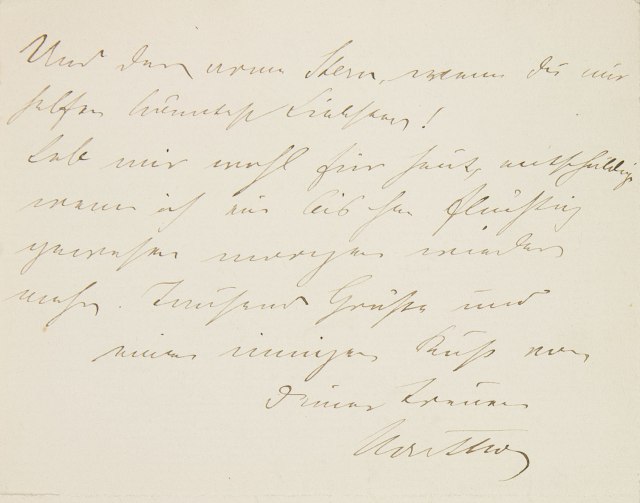 Und der arme Stern, wenn du mir
helfen könntest Liebster!
Leb mir wohl für heut, entschuldige
wenn ich ein bischen flüchtig
gewesen morgen wieder
mehr. Tausend Grüße und
einen innigen Kuß von
Deiner treuen